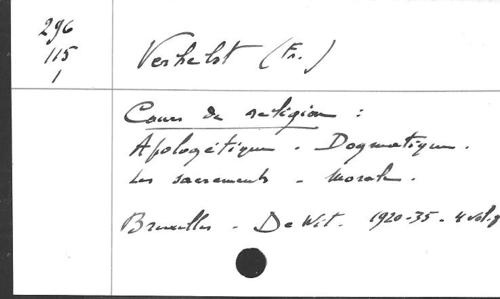 296
115
1
Verhelst (Fr.)
Cours de religion :
Apologétique. Dogmatique.
Les sacrements - Morale.
Bruxelles - De Wit. 1920-35 - 4 vol.